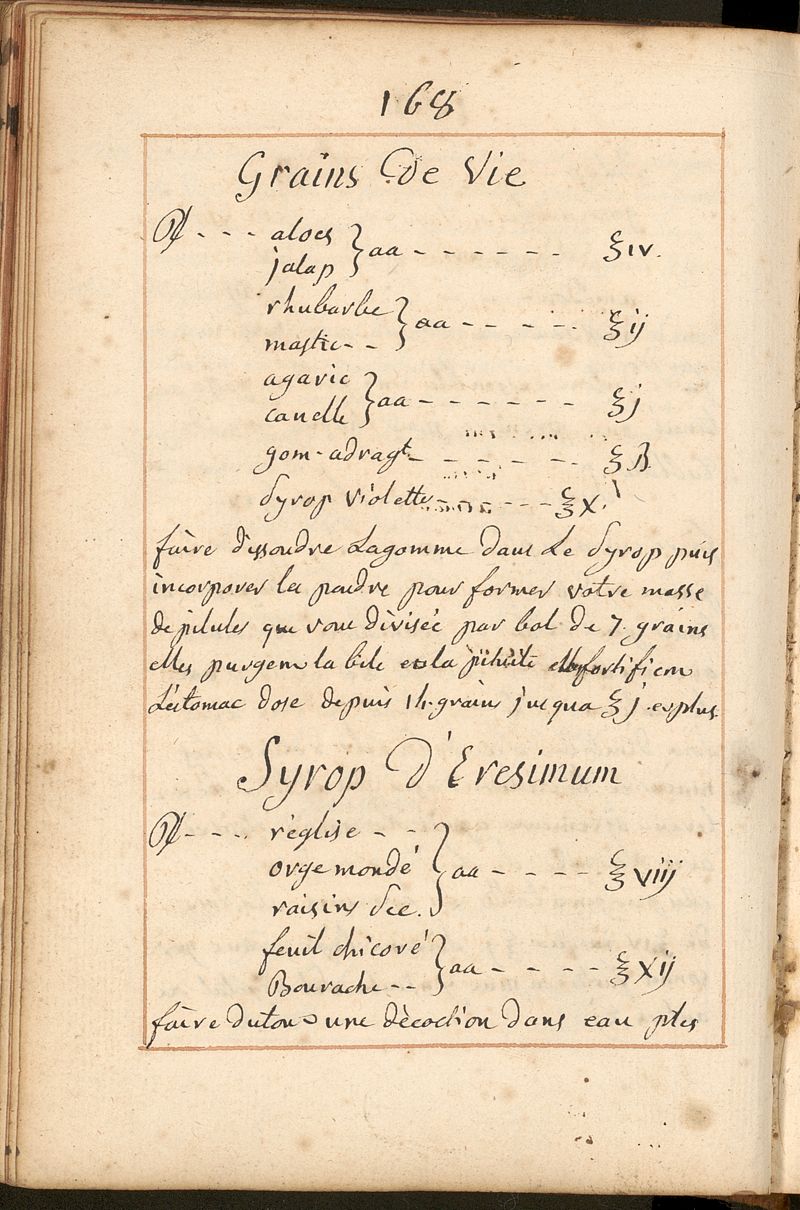 168
Grains De Vie
℞ - - - aloes
jalap } aa - - - - - - ℥ iv.
rhubarbe
mastic - - } aa - - - - - ℥ ij
agaric
canelle } aa - - - - - - ℥ j
gom-adragt - - - - - - ℥ ß
Syrop Violette - - - - - ℥ X.
faire dissoudre Lagomme dans Le Syrop puis
incorporer la poudre pour former votre masse
de pilules que vous divisée par bol de 7. grains
elles purgent la bile et la pituite fortifient
L'estomac dose depuis grains jusqua ℥ j. et plus
Syrop D'Eresimum
℞ - - - réglise - -
orge mondé
raisins Sec. } aa - - - - ℥ viij
feuil chicoré
Bourache - - } aa - - - - ℥ Xij
faire dutout une dècoction dans eau ptes